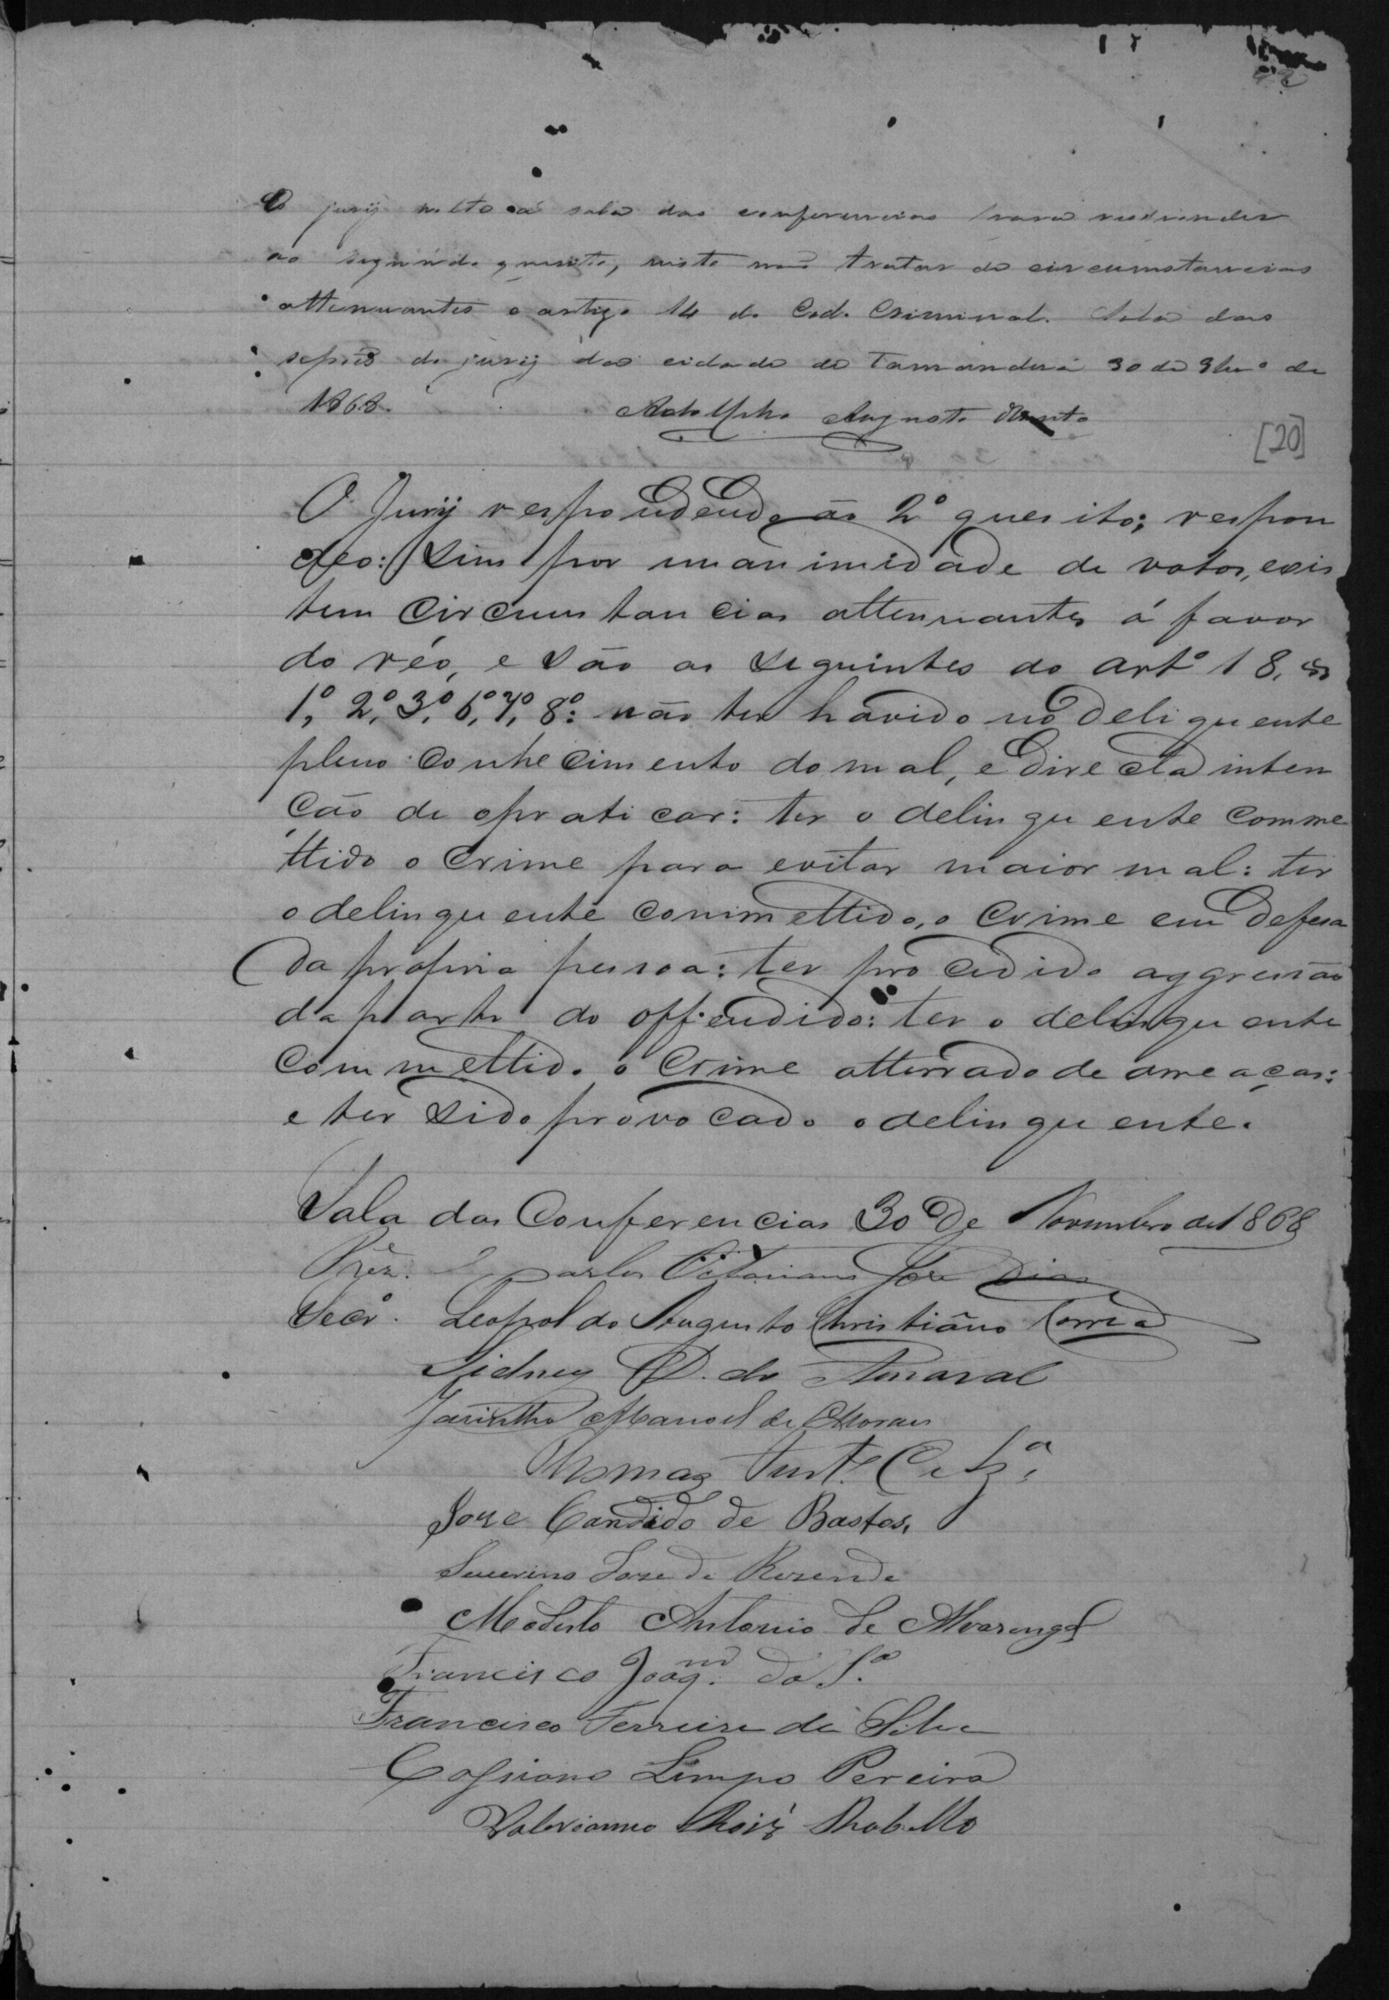 O jury volte á sala das conferencias para responder
ao segundo quesito, visto não tratar de circumstancias
attenuantes o artigo 14 do Cod. Criminal. Sala das
sessões do jury da cidade de Tamanduá 30 de 9br.o de
1868. Adolpho Augusto
[20]
O Jury respondendo ao 2º quesito; respon
deo: Sim por unanimidade de votos, exis
tem circumstancias attenuantes á favor
do réo, e são as seguintes do artº 18, §§
1º, 2º, 3º, 6º, 7º, 8º: não ter havido no deliquente
pleno conhecimento do mal, e directa inten
ção de o praticar: ter o delinquente comme
ttido o crime para evitar maior mal: ter
o delinquente commettido, o crime em defesa
da propria pessoa: ter procedido aggressão
da parte do offendido: ter o delinquente
commettido o crime atterrado de ameaças:
e ter sido provocado o delinquente.
Sala das Conferencias 30 de Novembro de 1868
Prez. Carlos Victoriano Jose Dias
Secrº. Leopoldo Augusto Christiano Corrêa
Sidney P. do Amaral
Jacintho Manoel de Moraes
Thomaz
Jose Candido de Bastos,
Severino Jose de Rezende
Modesto Antonio de Alvarenga
Francisco Joaqm. da S.a
Francisco Ferreira da Silva
Cassiano Limpo Pereira
Valerianno Roiz Rabello